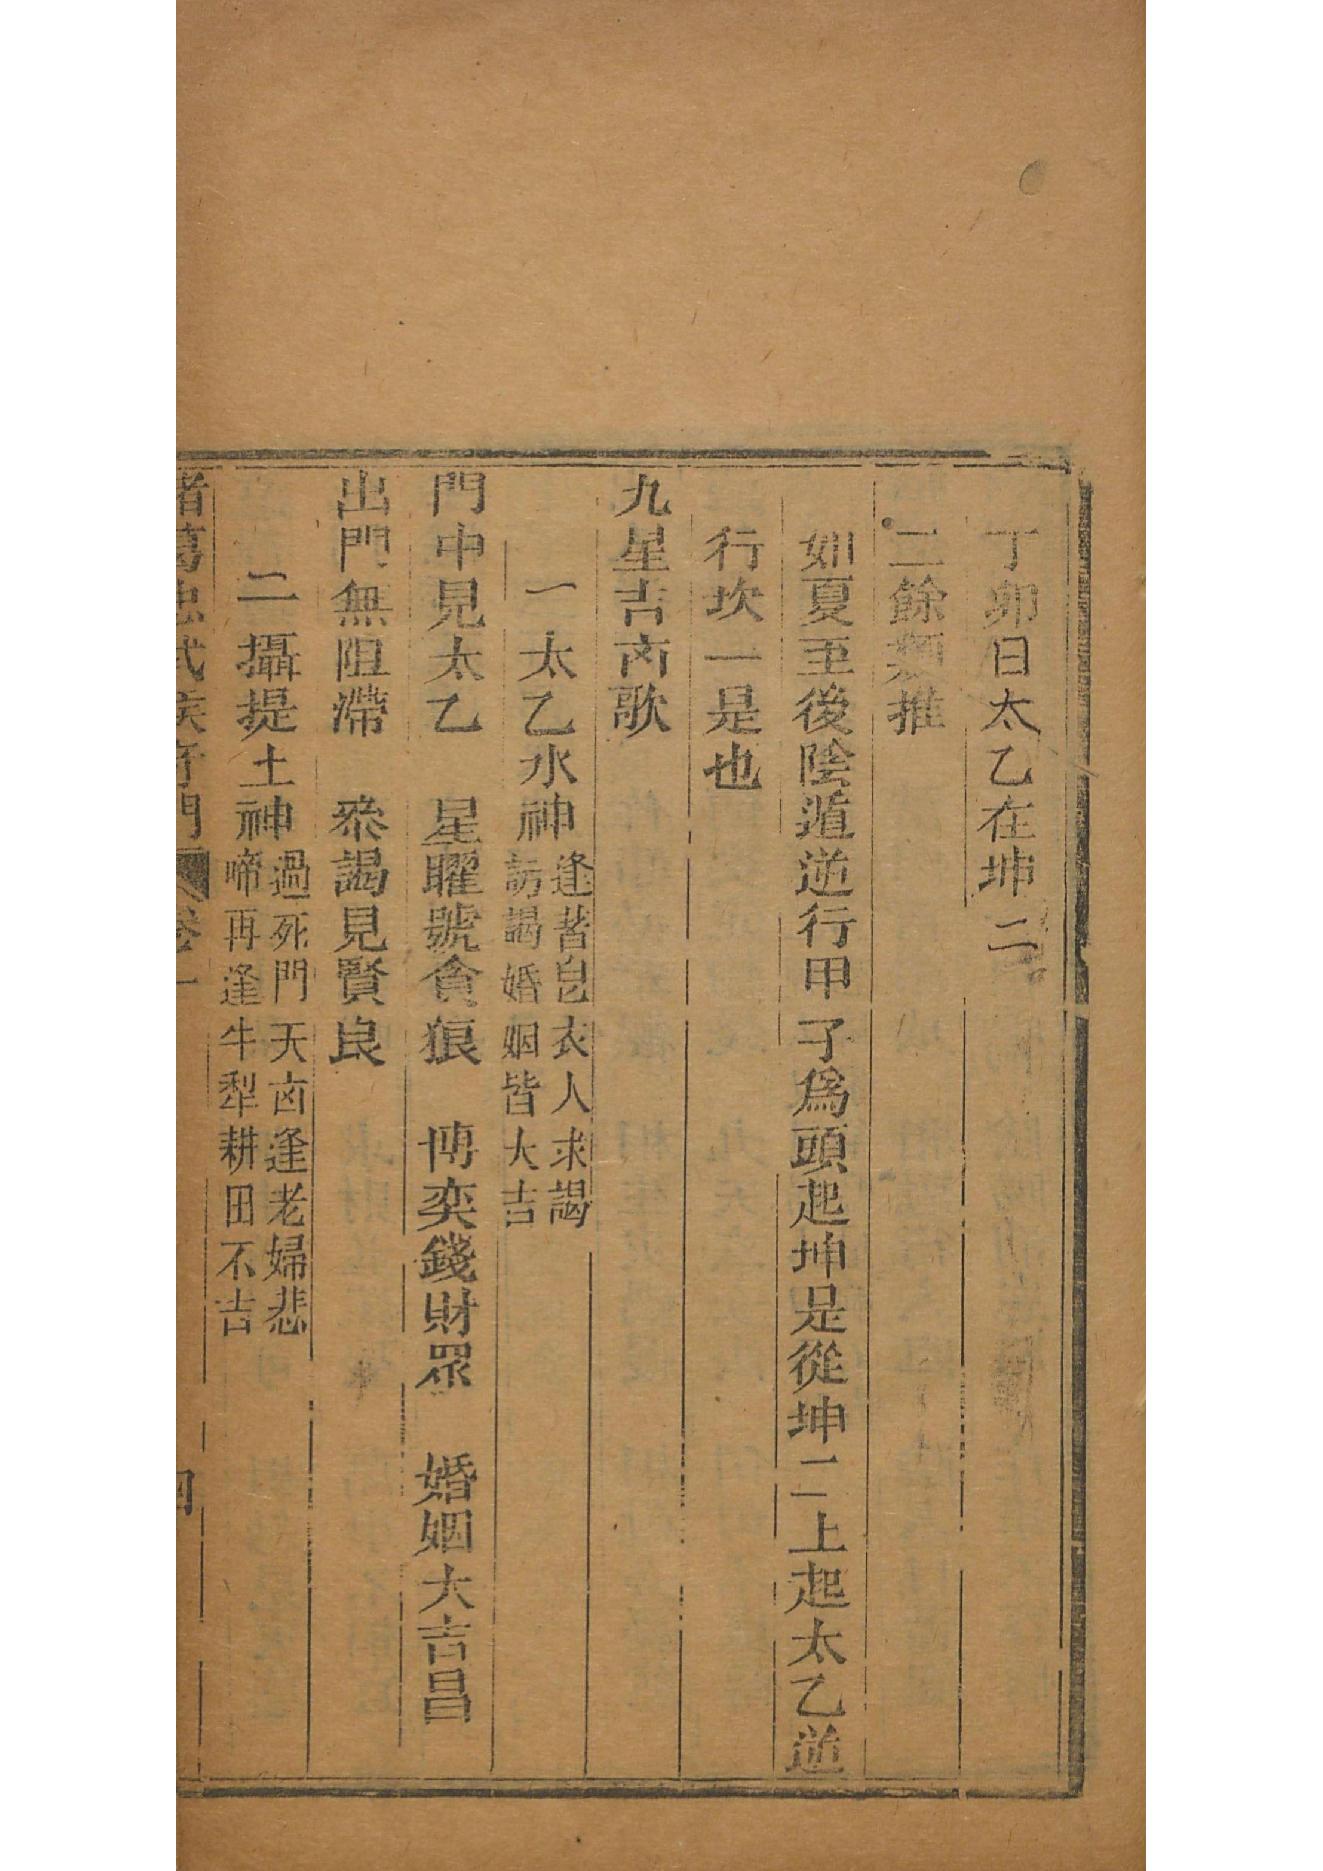 丁卯日太乙在坤二
二餘類推
如夏至後陰遁逆行甲子爲頭起坤是從坤二上起太乙逆
行坎一是也
九星吉㐫歌
一太乙水神
逢著皂衣人求謁
謁婚姻皆大吉
門中見太乙　星曜號貪狼　博奕錢財眾　婚姻大吉昌
出門無阻滯　叅謁見賢良
二攝提土神
過死門天㐫逢老婦悲
啼再逢牛犁耕田不吉
諸葛忠武侯奇門　卷一　四